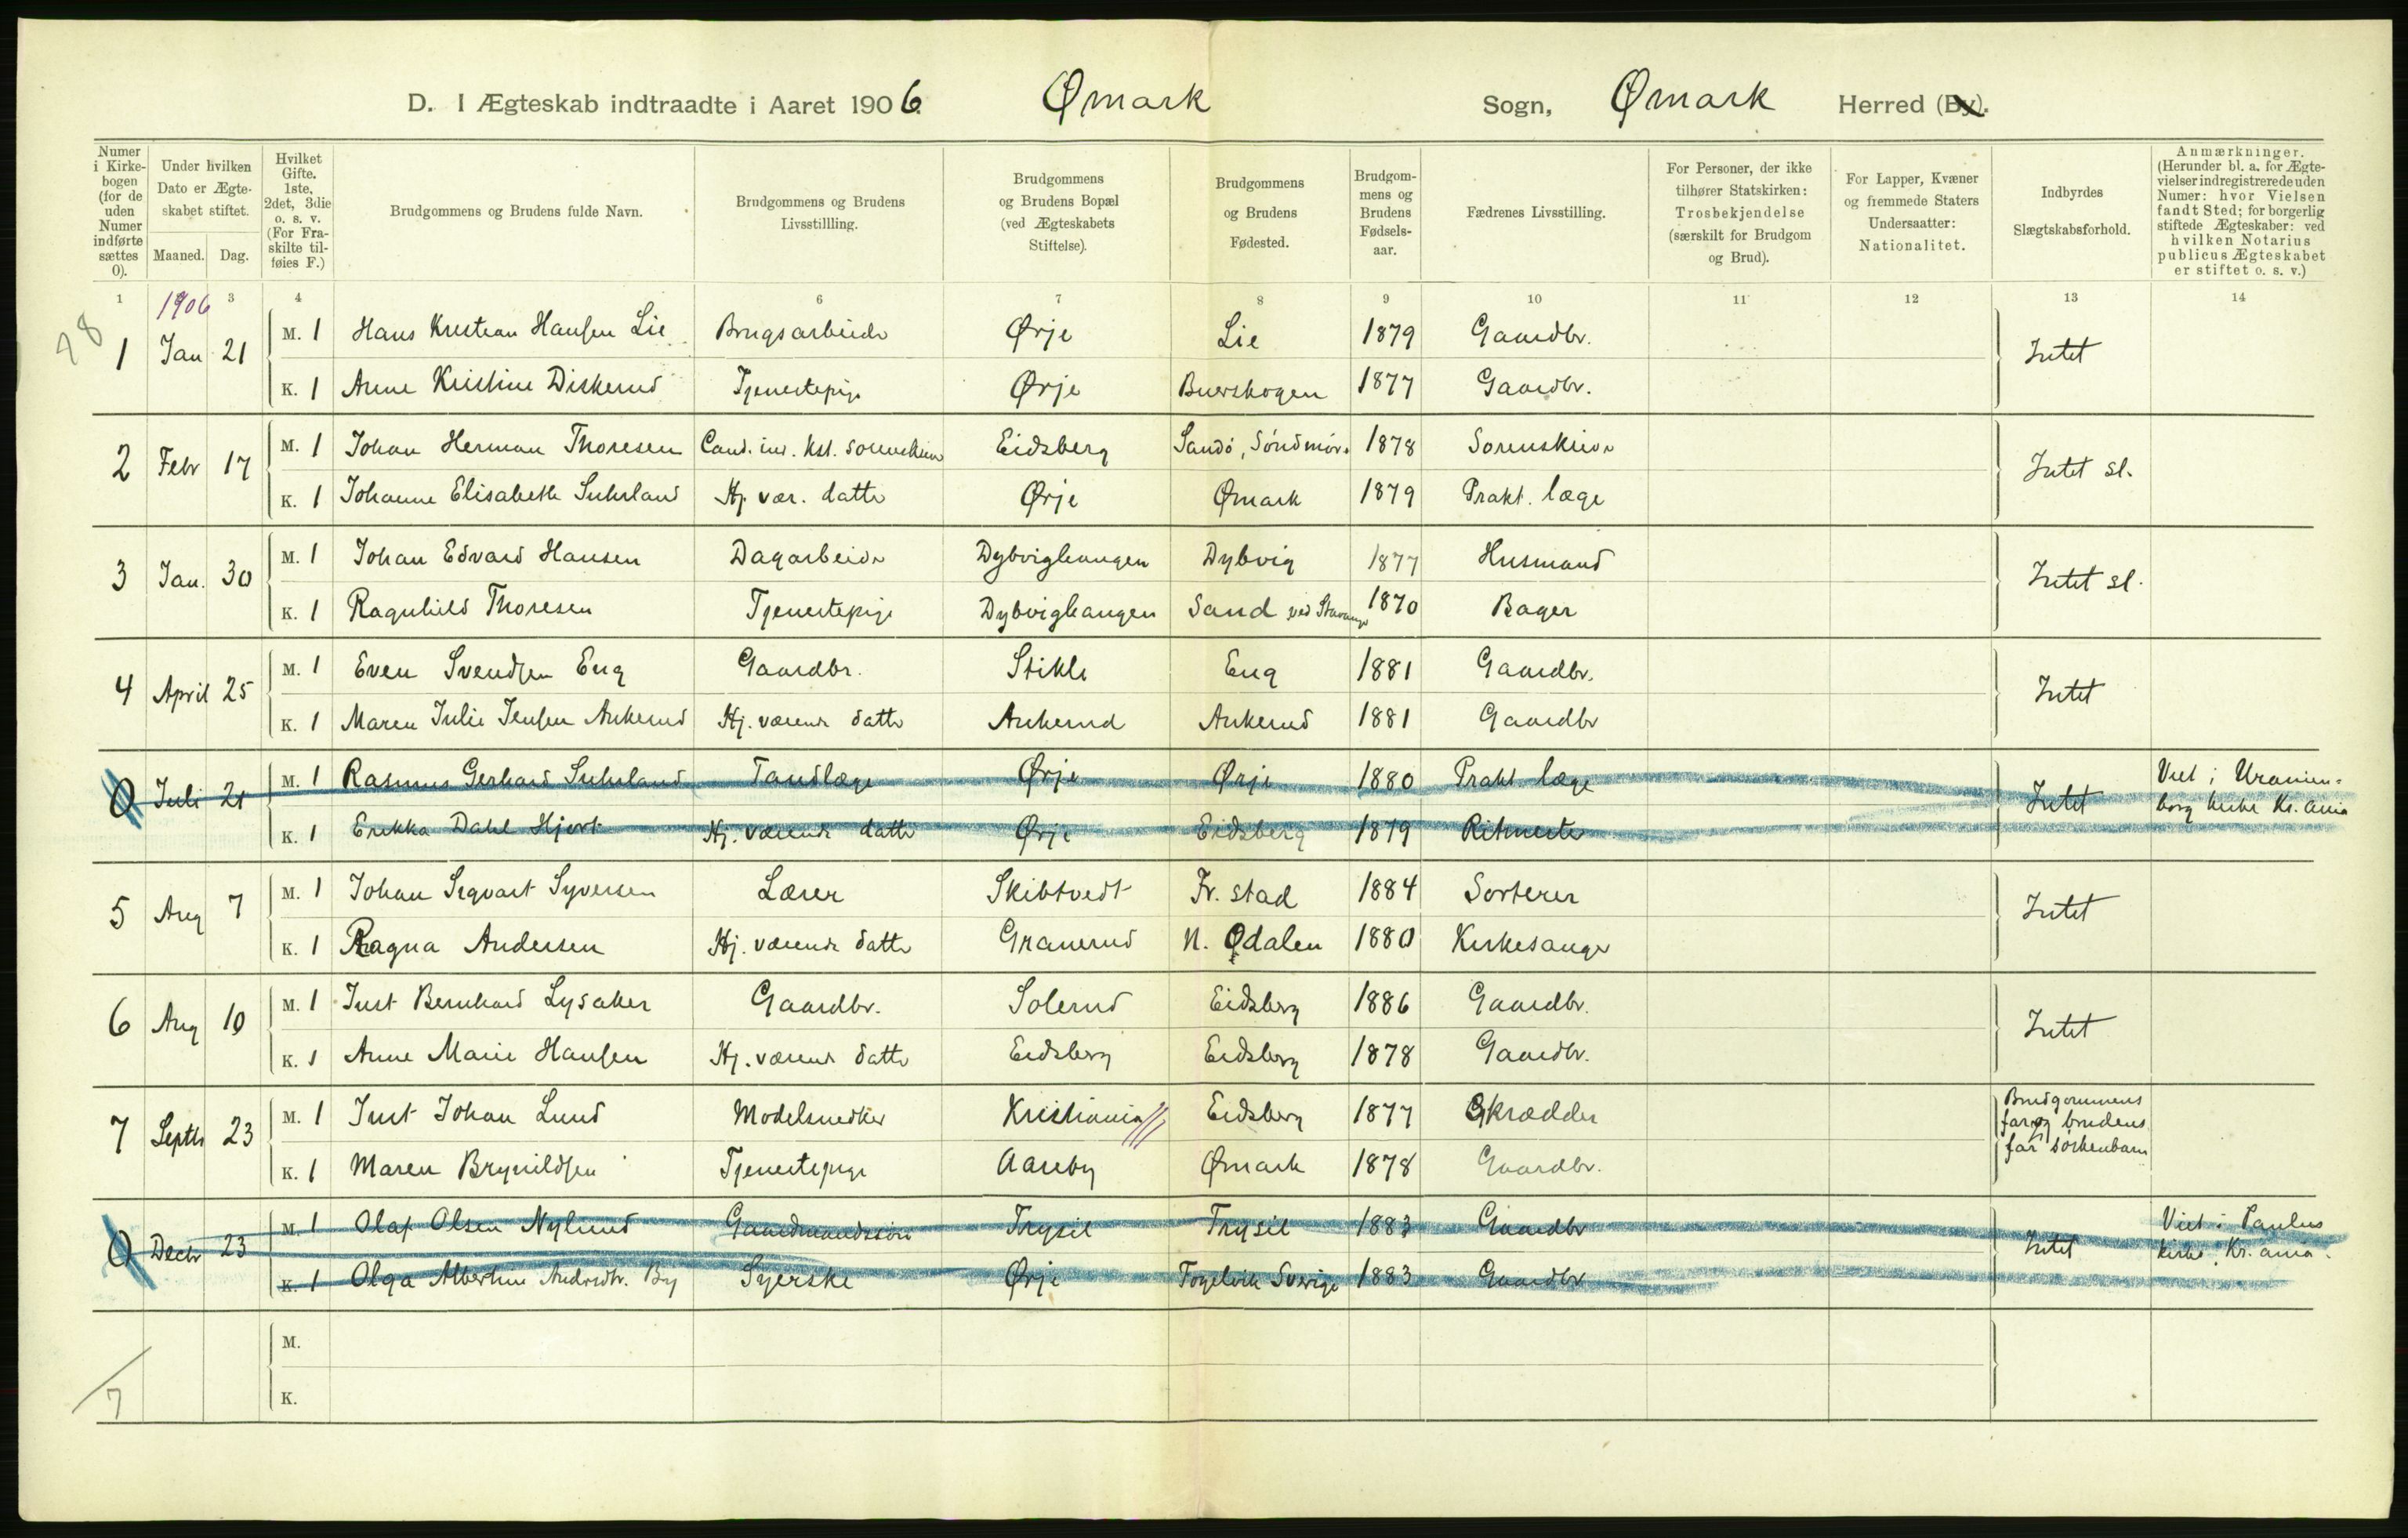 D. I Ægteskab indtraadte i Aaret 1906. Ømark Sogn, Ømark Herred (By).
Numer i Kirkebogen (for de uden Numer indførte sættes 0).
Under hvilken Dato er Ægteskabet stiftet.
Maaned. Dag.
Hvilket Gifte. 1ste, 2det, 3die o. s. v. (For Fraskilte tilføies F.)
Brudgommens og Brudens fulde Navn.
Brudgommens og Brudens Livsstillling.
Brudgommens og Brudens Bopæl (ved Ægteskabets Stiftelse).
Brudgommens og Brudens Fødested.
Brudgommens og Brudens Fødselsaar.
Fædrenes Livsstilling.
For Personer, der ikke tilhører Statskirken: Trosbekjendelse (særskilt for Brudgom og Brud).
For Lapper, Kvæner og fremmede Staters Undersaatter: Nationalitet.
Indbyrdes Slægtskabsforhold.
Anmærkninger. (Herunder bl. a. for Ægtevielser indregistrerede uden Numer: hvor Vielsen fandt Sted; for borgerlig stiftede Ægteskaber: ved hvilken Notarius publicus Ægteskabet er stiftet o. s. v.)
1 3 4 6 7 8 9 10 11 12 13 14
1906
28
1 Jan 21 M. 1 Hans Kristian Hansen Lie Brugsarbeider Ørje Lie 1879 Gaardbr. Intet
K. 1 Anne Kristine Diskerud Tjenestepige Ørje Buerskogen 1877 Gaardbr.
2 Febr 17 M. 1 Johan Herman Thoresen Cand. jur. kst. sorenskriver Eidsberg Sandö, Söndmör 1878 Sorenskriver Intet sl.
K. 1 Johanne Elisabeth Suhrland Hj. vær. datter Ørje Ømark 1879 Prakt. læge
3 Jan. 30 M. 1 Johan Edvard Hansen Dagarbeider Dybvighaugen Dybvig 1877 Husmand Intet sl.
K. 1 Ragnhild Thoresen Tjenestepige Dybvighaugen Sand ved Stavanger 1870 Bager
4 April 25 M. 1 Even Svendsen Eng Gaardbr. Stikle Eng 1881 Gaardbr. Intet
K. 1 Maren Julie Jensen Ankerud Hj. værende datter Ankerud Ankerud 1881 Gaardbr
0 Juli 21 M. 1 Rasmus Gerhard Suhrland Tandlæge Ørje Ørje 1880 Prakt. læge Intet Viet i Uranien-
K. 1 Erikka Dahl Hjort Hj. værende datter Ørje Eidsberg 1879 Ritmester borg kirke Kr.ania
5 Aug 7 M. 1 Johan Sigvart Syversen Lærer Skibtvedt Fr.stad 1884 Sorterer Intet
K. 1 Ragna Andersen Hj. værende datter Granerud N. Odalen 1880 Kirkesanger
6 Aug 10 M. 1 Just Bernhard Lysaker Gaardbr. Solerud Eidsberg 1886 Gaardbr. Intet
K. 1 Anne Marie Hansen Hj. værende datter Eidsberg Eidsberg 1878 Gaardbr.
7 Septbr 23 M. 1 Just Johan Lund Modelsnedker Kristiania Eidsberg 1877 Skrædder Brudgommens
far og brudens
far sörkenbarn
K. 1 Maren Brynildsen Tjenestepige Aareby Ømark 1878 Gaardbr.
0 Decbr 23 M. 1 Olaf Olsen Nylund Gaardmandssön Trysil Trysil 1883 Gaardbr Intet Viet i Paulus
K. 1 Olga Albertine Andrsdtr. By Syerske Ørje Fogelvik Sverige 1883 Gaardbr kirke, Kr.ania.
M.
K.
7